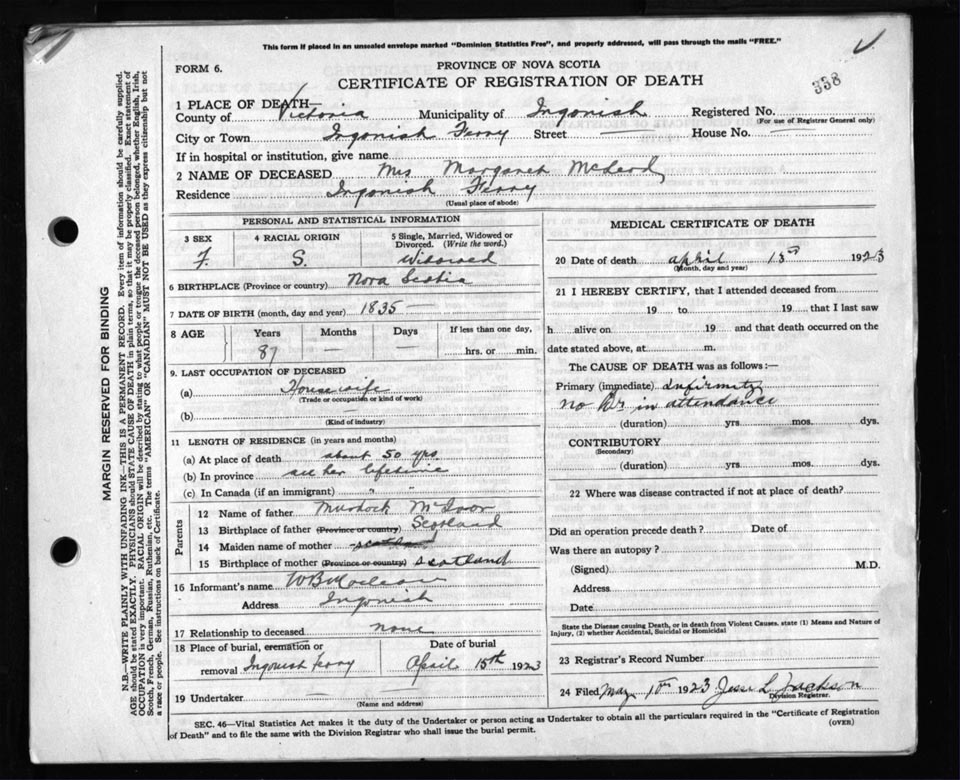 This form if placed in an unsealed envelope marked "Dominion Statistics Free", and properly addressed, will pass through the mails "FREE."
338
FORM 6.
PROVINCE OF NOVA SCOTIA
CERTIFICATE OF REGISTRATION OF DEATH
1 PLACE OF DEATH—
County of Victoria Municipality of Ingonish Registered No.
(For use of Registrar General only)
City or Town Ingonish Ferry Street — House No. —
If in hospital or institution, give name
2 NAME OF DECEASED Mrs Margaret McLeod
Residence Ingonish Ferry
(Usual place of abode)
PERSONAL AND STATISTICAL INFORMATION
3 SEX
F.
4 RACIAL ORIGIN
S.
5 Single, Married, Widowed or
Divorced. (Write the word.)
Widowed
6 BIRTHPLACE (Province or country) Nova Scotia
7 DATE OF BIRTH (month, day and year) 1835 —
8 AGE
Years
87
Months
—
Days
—
If less than one day,
hrs. or min.
9. LAST OCCUPATION OF DECEASED
(a) House wife
(Trade or occupation or kind of work)
(b) —
(Kind of industry)
11 LENGTH OF RESIDENCE (in years and months)
(a) At place of death about 50 yrs
(b) In province all her lifetime
(c) In Canada (if an immigrant) " "
Parents
12 Name of father Murdock
13 Birthplace of father (Province or country) Scotland
14 Maiden name of mother Scotland
15 Birthplace of mother (Province or country) Scotland
16 Informant's name W B Maclean
Address Ingonish
17 Relationship to deceased none
18 Place of burial, cremation or
removal Ingonish ferry
Date of burial
April 15th 1923
19 Undertaker —
(Name and address)
MEDICAL CERTIFICATE OF DEATH
20 Date of death April 13th 1923
(Month, day and year)
21 I HEREBY CERTIFY, that I attended deceased from
19 to 19 that I last saw
h alive on 19 and that death occurred on the
date stated above, at m.
The CAUSE OF DEATH was as follows:—
Primary (immediate) infirmity
no Dr in attendance
(duration) yrs mos. dys.
CONTRIBUTORY
(Secondary)
(duration) yrs. mos. dys.
22 Where was disease contracted if not at place of death?
Did an operation precede death? Date of
Was there an autopsy?
(Signed) M.D.
Address
Date
State the Disease causing Death, or in death from Violent Causes, state (1) Means and Nature of
Injury, (2) whether Accidental, Suicidal or Homicidal
23 Registrar's Record Number
24 Filed May 1923 Jesse L Jackson
Division Registrar.
SEC. 46—Vital Statistics Act makes it the duty of the Undertaker or person acting as Undertaker to obtain all the particulars required in the "Certificate of Registration
of Death" and to file the same with the Division Registrar who shall issue the burial permit.
(OVER)
MARGIN RESERVED FOR BINDING
N.B.—WRITE PLAINLY WITH UNFADING INK—THIS IS A PERMANENT RECORD. Every item of information should be carefully supplied.
AGE should be stated EXACTLY. PHYSICIANS should STATE CAUSE OF DEATH in plain terms, so that it may be properly classified. Exact statement of
OCCUPATION is very important. RACIAL ORIGIN will be described by stating to what people or tongue the deceased person belonged, whether English, Irish,
Scotch, French, German, Russian, Ruthenian, etc. The terms "AMERICAN" OR "CANADIAN" MUST NOT BE USED as they express citizenship but not
a race or people. See instructions on back of Certificate.